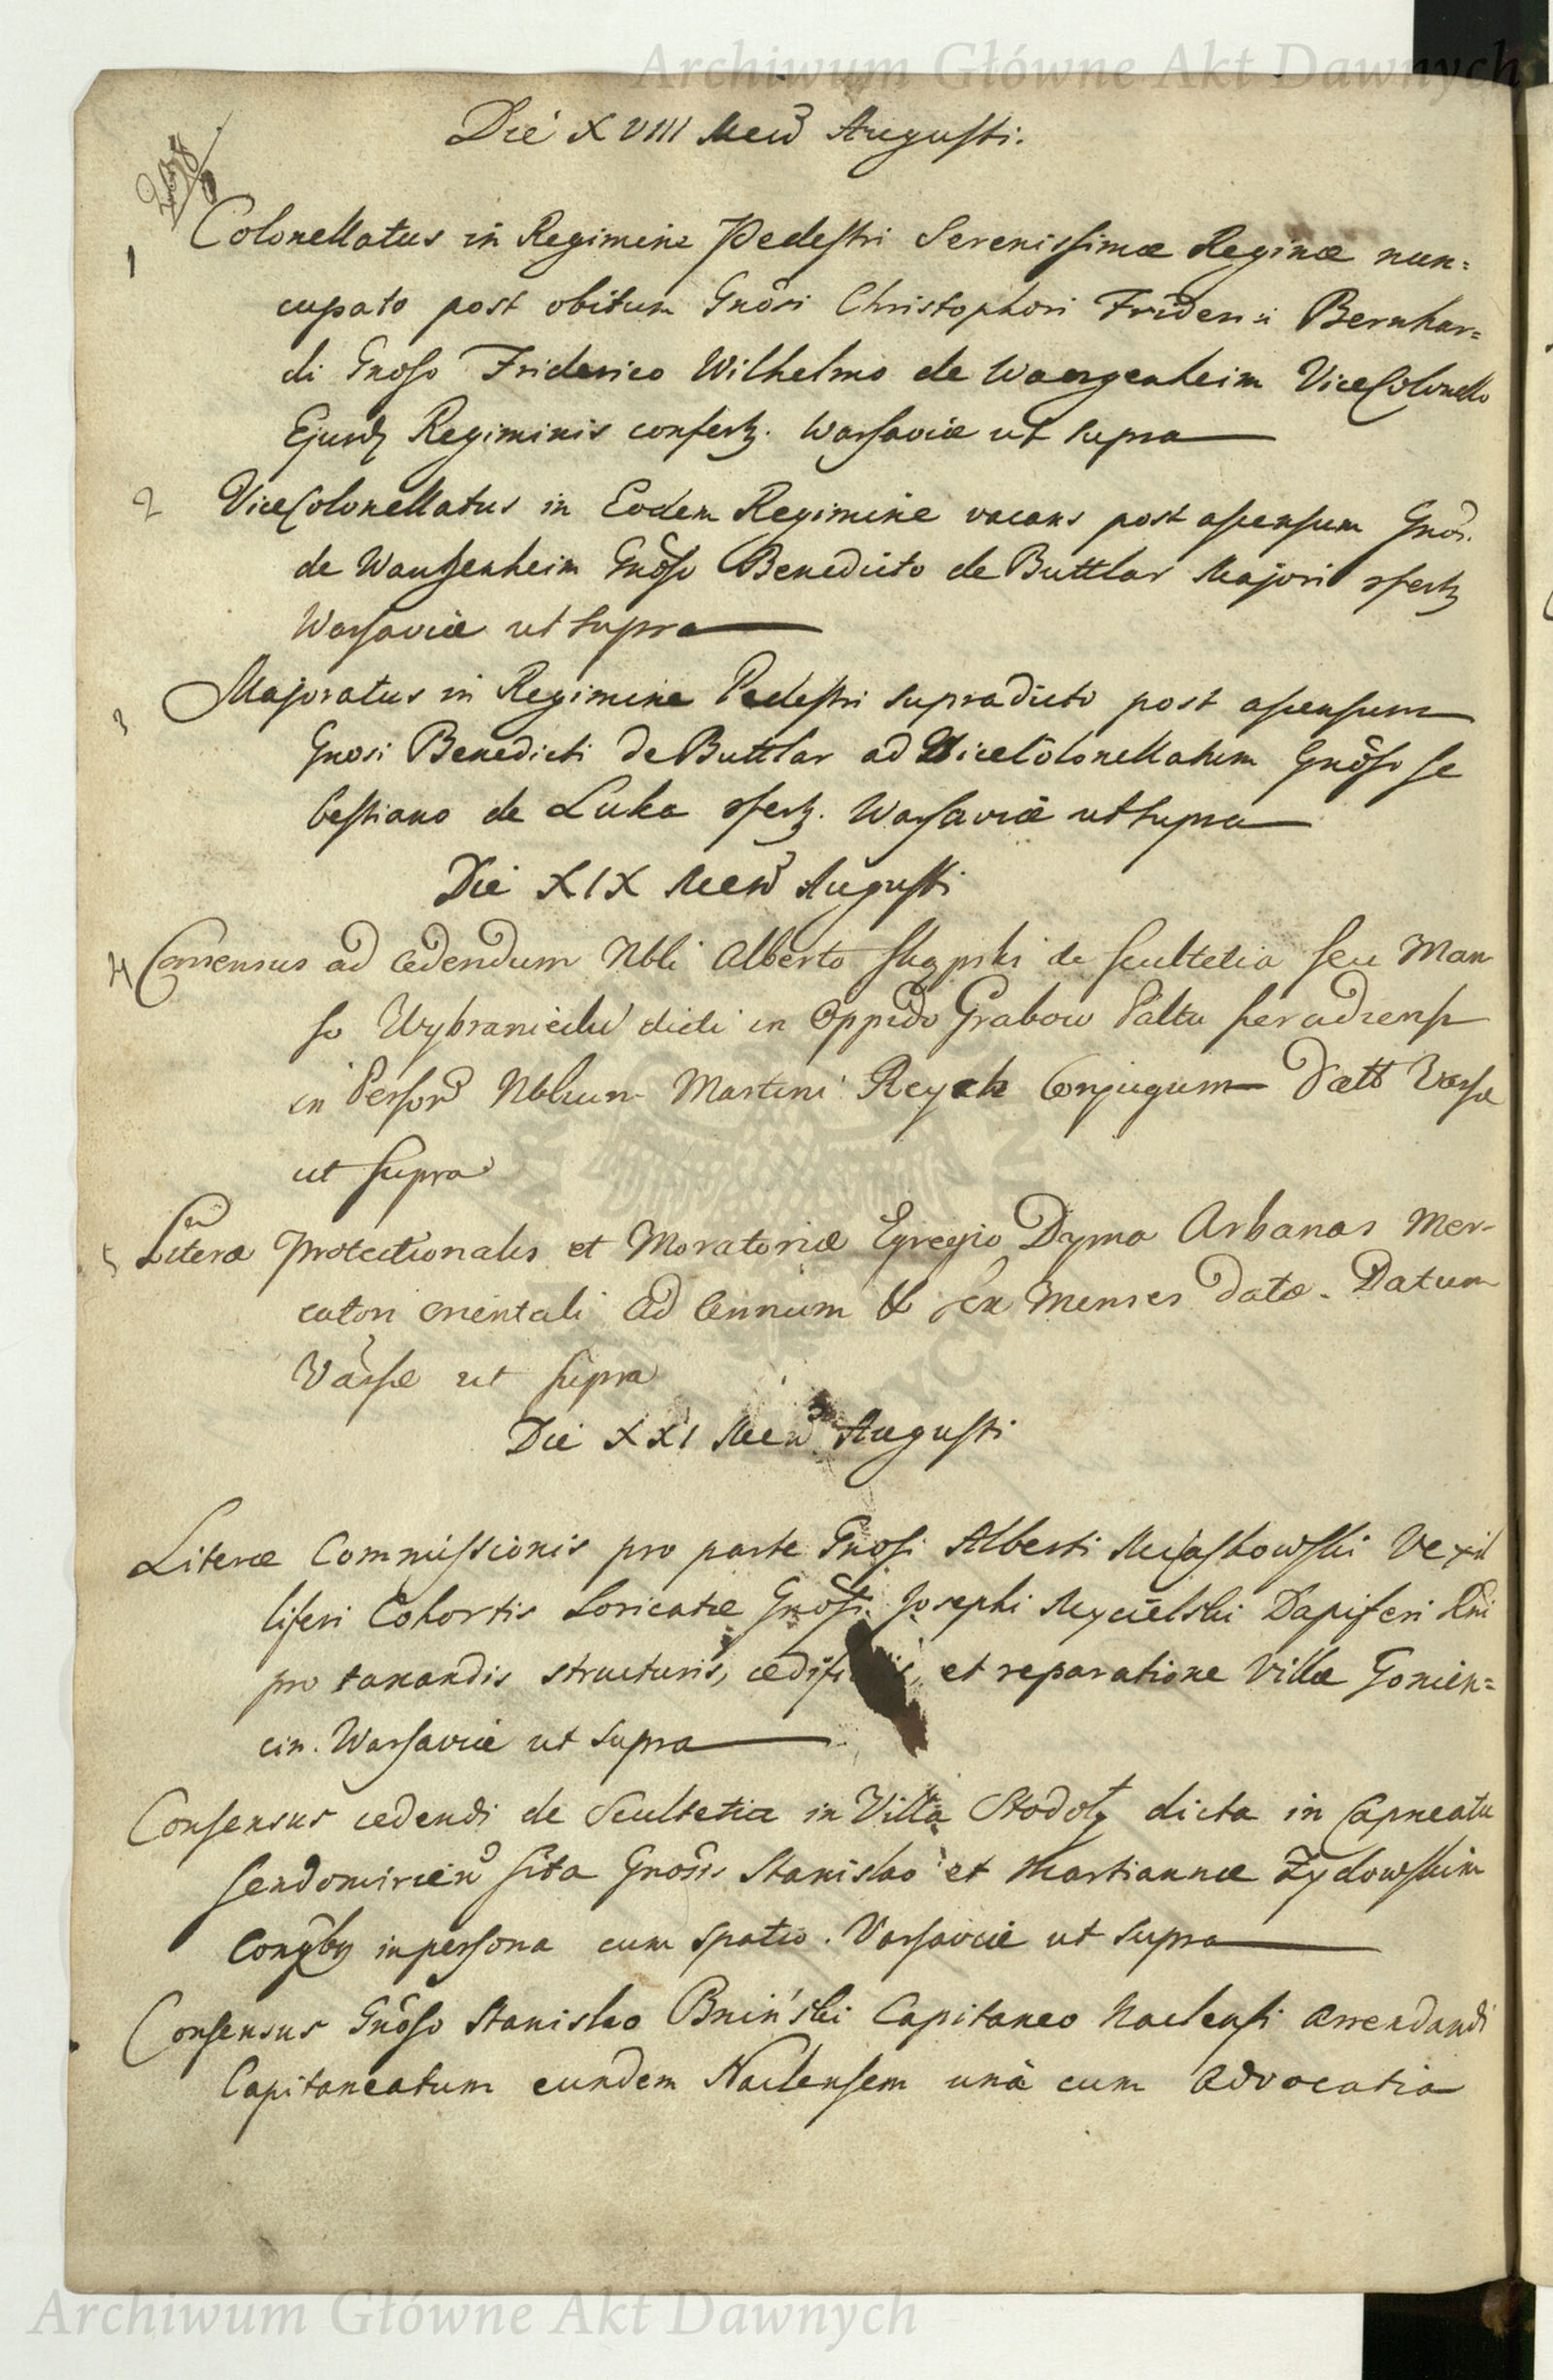 Archiwum Główne Akt Dawnych
Die XVIII Mens Augusti.
1 Colonellatus in Regimine Pedestri Serenissimæ Reginæ nun=
cupato post obitum Gnosi Christophori Friderici Bernhar=
di Gnoso Friderico Wilhelmo de Wangenheim ViceColonello
Ejusdz Regiminis confertz. Warsaviæ ut supra
2 ViceColonellatus in Eodem Regimine vacans post ascensum Gnosi.
de Wangenheim Gnoso Benedicto de Buttlar Majori sfertz
Warsaviæ ut supra
3 Majoratus in Regimine Pedestri supradicto post ascensum
Gnosi Benedicti de Buttlar ad ViceColonellatum Gnoso Se
bestiano de Luka sfertz. Warsaviæ ut supra
Die XIX Mens Augusti
4 Consensus ad cedendum Nbli Alberto Skypski de Scultetia seu Man
so Wybraniecki dicti in Oppido Grabow Paltu Seradiens
in Person Nblium Martini Reych Conjugum Datt Varsæ
ut supra
5 Literæ Protectionales et Moratoriæ Egregio Dyma Arbanas Mer-
catori orientali ad Annum & sex Menses datæ. Datum
Varsæ ut supra
Die XXI Mens Augusti
Literæ Commissionis pro parte Gnosi Alberti Miaskowski Vexil
liferi Cohortis Loricatæ Gnosi Josephi Mycielski Dapiferi Rni
pro taxandis structuris, et reparatione Villæ Gonien=
cin. Warsaviæ ut supra
Consensus cedendi de Scultetia in Villa Stodoły dicta in Capneatu
Sendomirien sita Gnosis Stanislao et Mariannæ Zydowskim
Conjgbz in persona cum spatio. Varsaviæ ut supra
Consensus Gnoso Stanislao Bniński Capitaneo Naclensi arrendandi
Capitaneatum eundem Naclensem unà cum advocatia
Archiwum Główne Akt Dawnych